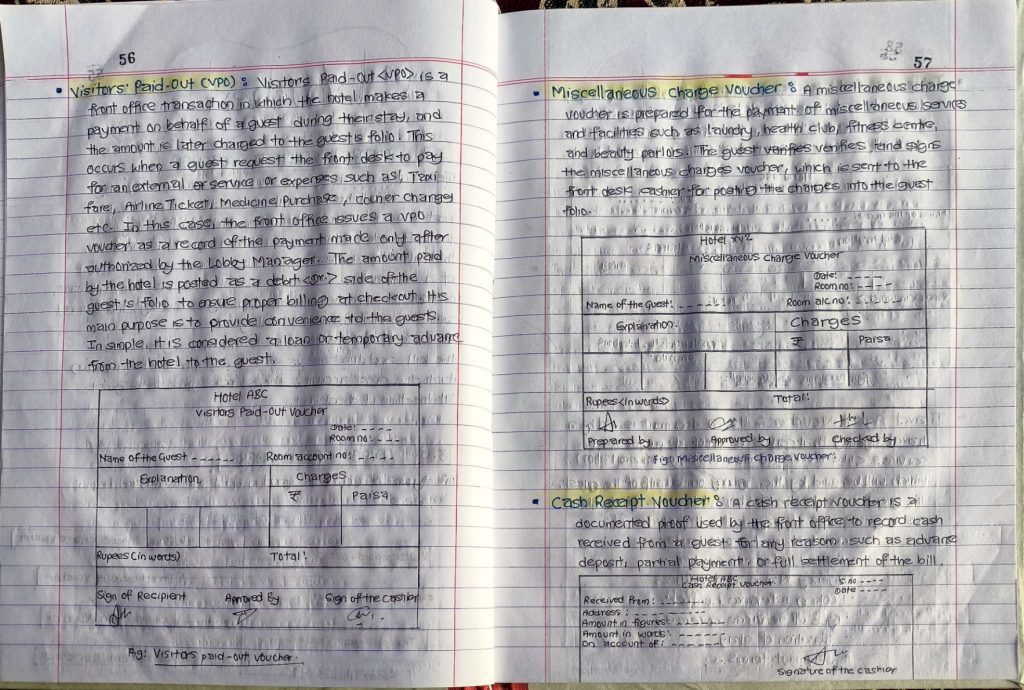 56
• Visitors' Paid-Out (VPO) : Visitors Paid-Out <VPO> is a
front office transaction in which the hotel makes a
payment on behalf of a guest during their stay, and
the amount is later charged to the guest's folio. This
occurs when a guest request the front desk to pay
for an external or service or expenses such as, Taxi
fore, Airline Ticket, Medicine Purchase, courier charges
etc. In this case, the front office issues a VPO
voucher as a record of the payment made only after
authorized by the Lobby Manager. The amount paid
by the hotel is posted as a debit <Dr.> side of the
guest's folio to ensure proper billing at checkout. It's
main purpose is to provide convenience to the guests.
In simple, it is considered a loan or temporary advance
from the hotel to the guest.
Hotel ABC
Visitors Paid-Out Voucher
Date: ----
Room no: ---
Name of the Guest ------ Room account no: ----
Explanation. Charges
₹ Paisa
Rupees (in words) Total:
Sign of Recipient Approved By Sign of the cashier
Fig: Visitors paid-out voucher.
57
• Miscellaneous Charge Voucher : A miscellaneous charge
voucher is prepared for the payment of miscellaneous services
and facilities such as laundry, health club, fitness centre,
and beauty parlors. The guest verifies verifies and signs
the miscellaneous charges voucher, which is sent to the
front desk cashier for posting the charges into the guest
folio.
Hotel XYZ
Miscellaneous Charge Voucher
Date: ----
Room no: ----
Name of the Guest: ----- Room a/c no: ----
Explanation. Charges
₹ Paisa
Rupees <in words> Total:
Prepared by Approved by Checked by
Fig: Miscellaneous Charge Voucher.
• Cash Receipt Voucher : A cash receipt voucher is a
documented proof used by the font office to record cash
received from a guest for any reason, such as advance
deposit, partial payment, or full settlement of the bill.
Hotel ABC
Cash Receipt Voucher S.no ----
Date ----
Received From: ------
Address: --------
Amount in figures: ------
Amount in words: ------
On account of: ------
Signature of the cashier